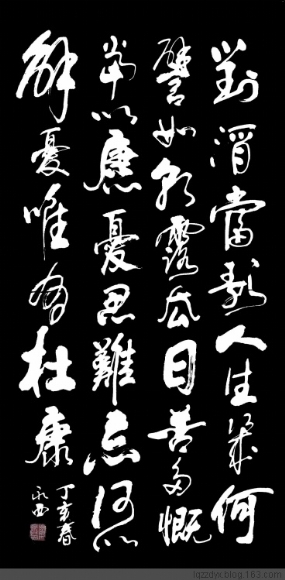 對酒當歌人生幾何
譬如朝露去日苦多慨
當以慷憂思難忘何以
解憂唯有杜康
丁亥春